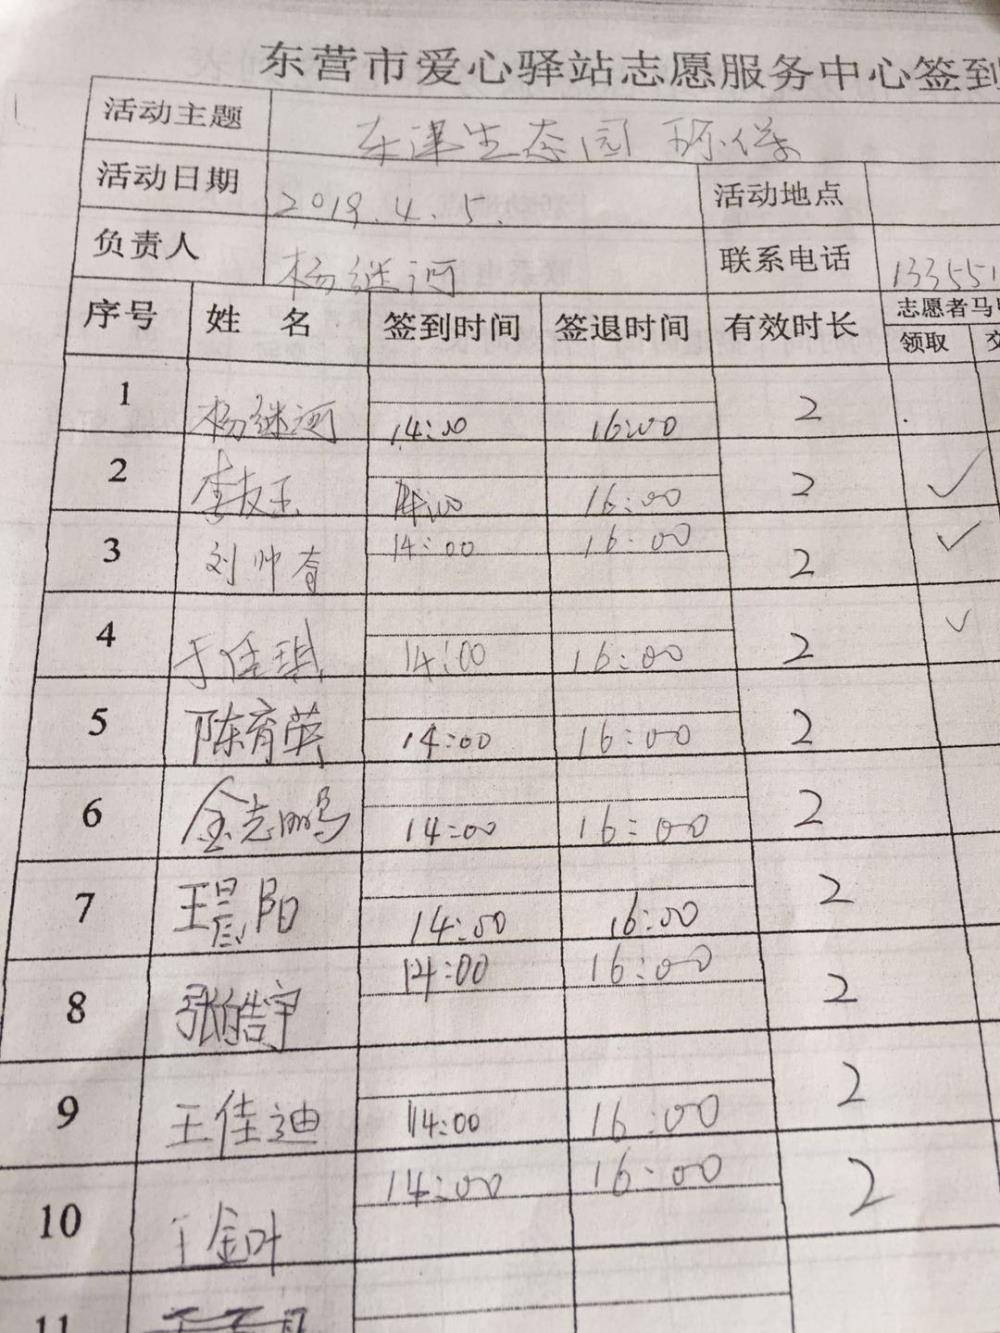 东营市爱心驿站志愿服务中心签到
活动主题 东津生态园 环保
活动日期 2019.4.5. 活动地点
负责人 杨继河 联系电话 133551
序号 姓 名 签到时间 签退时间 有效时长 志愿者马
领取 交
1 杨继河 14:00 16:00 2
2 李友玉 14:00 16:00 2 ✓
3 刘帅奇 14:00 16:00 2 ✓
4 于佳琪 14:00 16:00 2 ✓
5 陈育英 14:00 16:00 2
6 金志鹏 14:00 16:00 2
7 王晨阳 14:00 16:00 2
8 张皓宇 14:00 16:00 2
9 王佳迪 14:00 16:00 2
10 王金叶 14:00 16:00 2
11